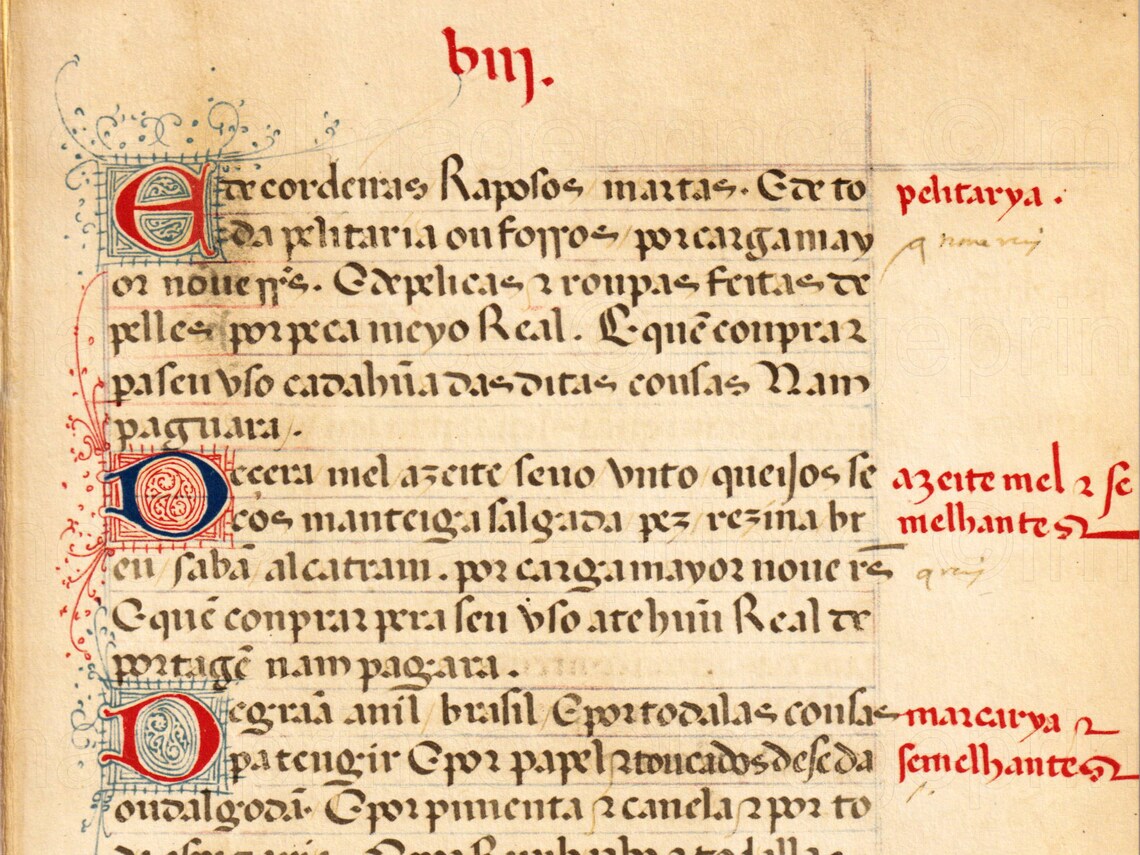 biij.
E de cordeiras Raposos martas. E de to
da pelitaria ou forros por carga may
or noue rrs. E de pelicas ⁊ roupas feitas de
pelles por peca meyo Real. E quē conprar
pa seu vso cada hũa das ditas cousas Nam
paguara.
De cera mel azeite seuo vnto queijos se
cos manteiga salgada pez rezina br
eu sabã alcatram. por carga mayor noue rs
E quē conprar pera seu vso ate huũ Real de
portagē nam pagara.
De graã anil brasil E por todalas cousas
pa tengir E por papel ⁊ toucados de seda
ou dalgodã. E por pimenta ⁊ canela ⁊ por to
pelitarya.
azeite mel ⁊ se
melhantes
marcarya ⁊
semelhantes